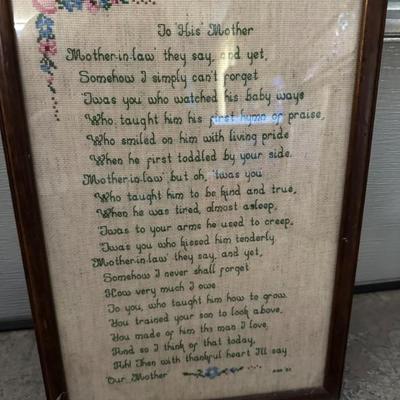 To "His" Mother
"Mother-in-law" they say, and yet,
Somehow I simply can't forget
'Twas you who watched his baby ways
Who taught him his first hymn of praise,
Who smiled on him with living pride
When he first toddled by your side.
"Mother-in-law" but oh, 'twas you
Who taught him to be kind and true,
When he was tired, almost asleep,
'Twas to your arms he used to creep,
'Twas you who kissed him tenderly.
"Mother-in-law" they say, and yet,
Somehow I never shall forget
How very much I owe
To you, who taught him how to grow.
You trained your son to look above,
You made of him the man I love,
And so I think of that today,
Ah! Then with thankful heart I'll say
"Our Mother"